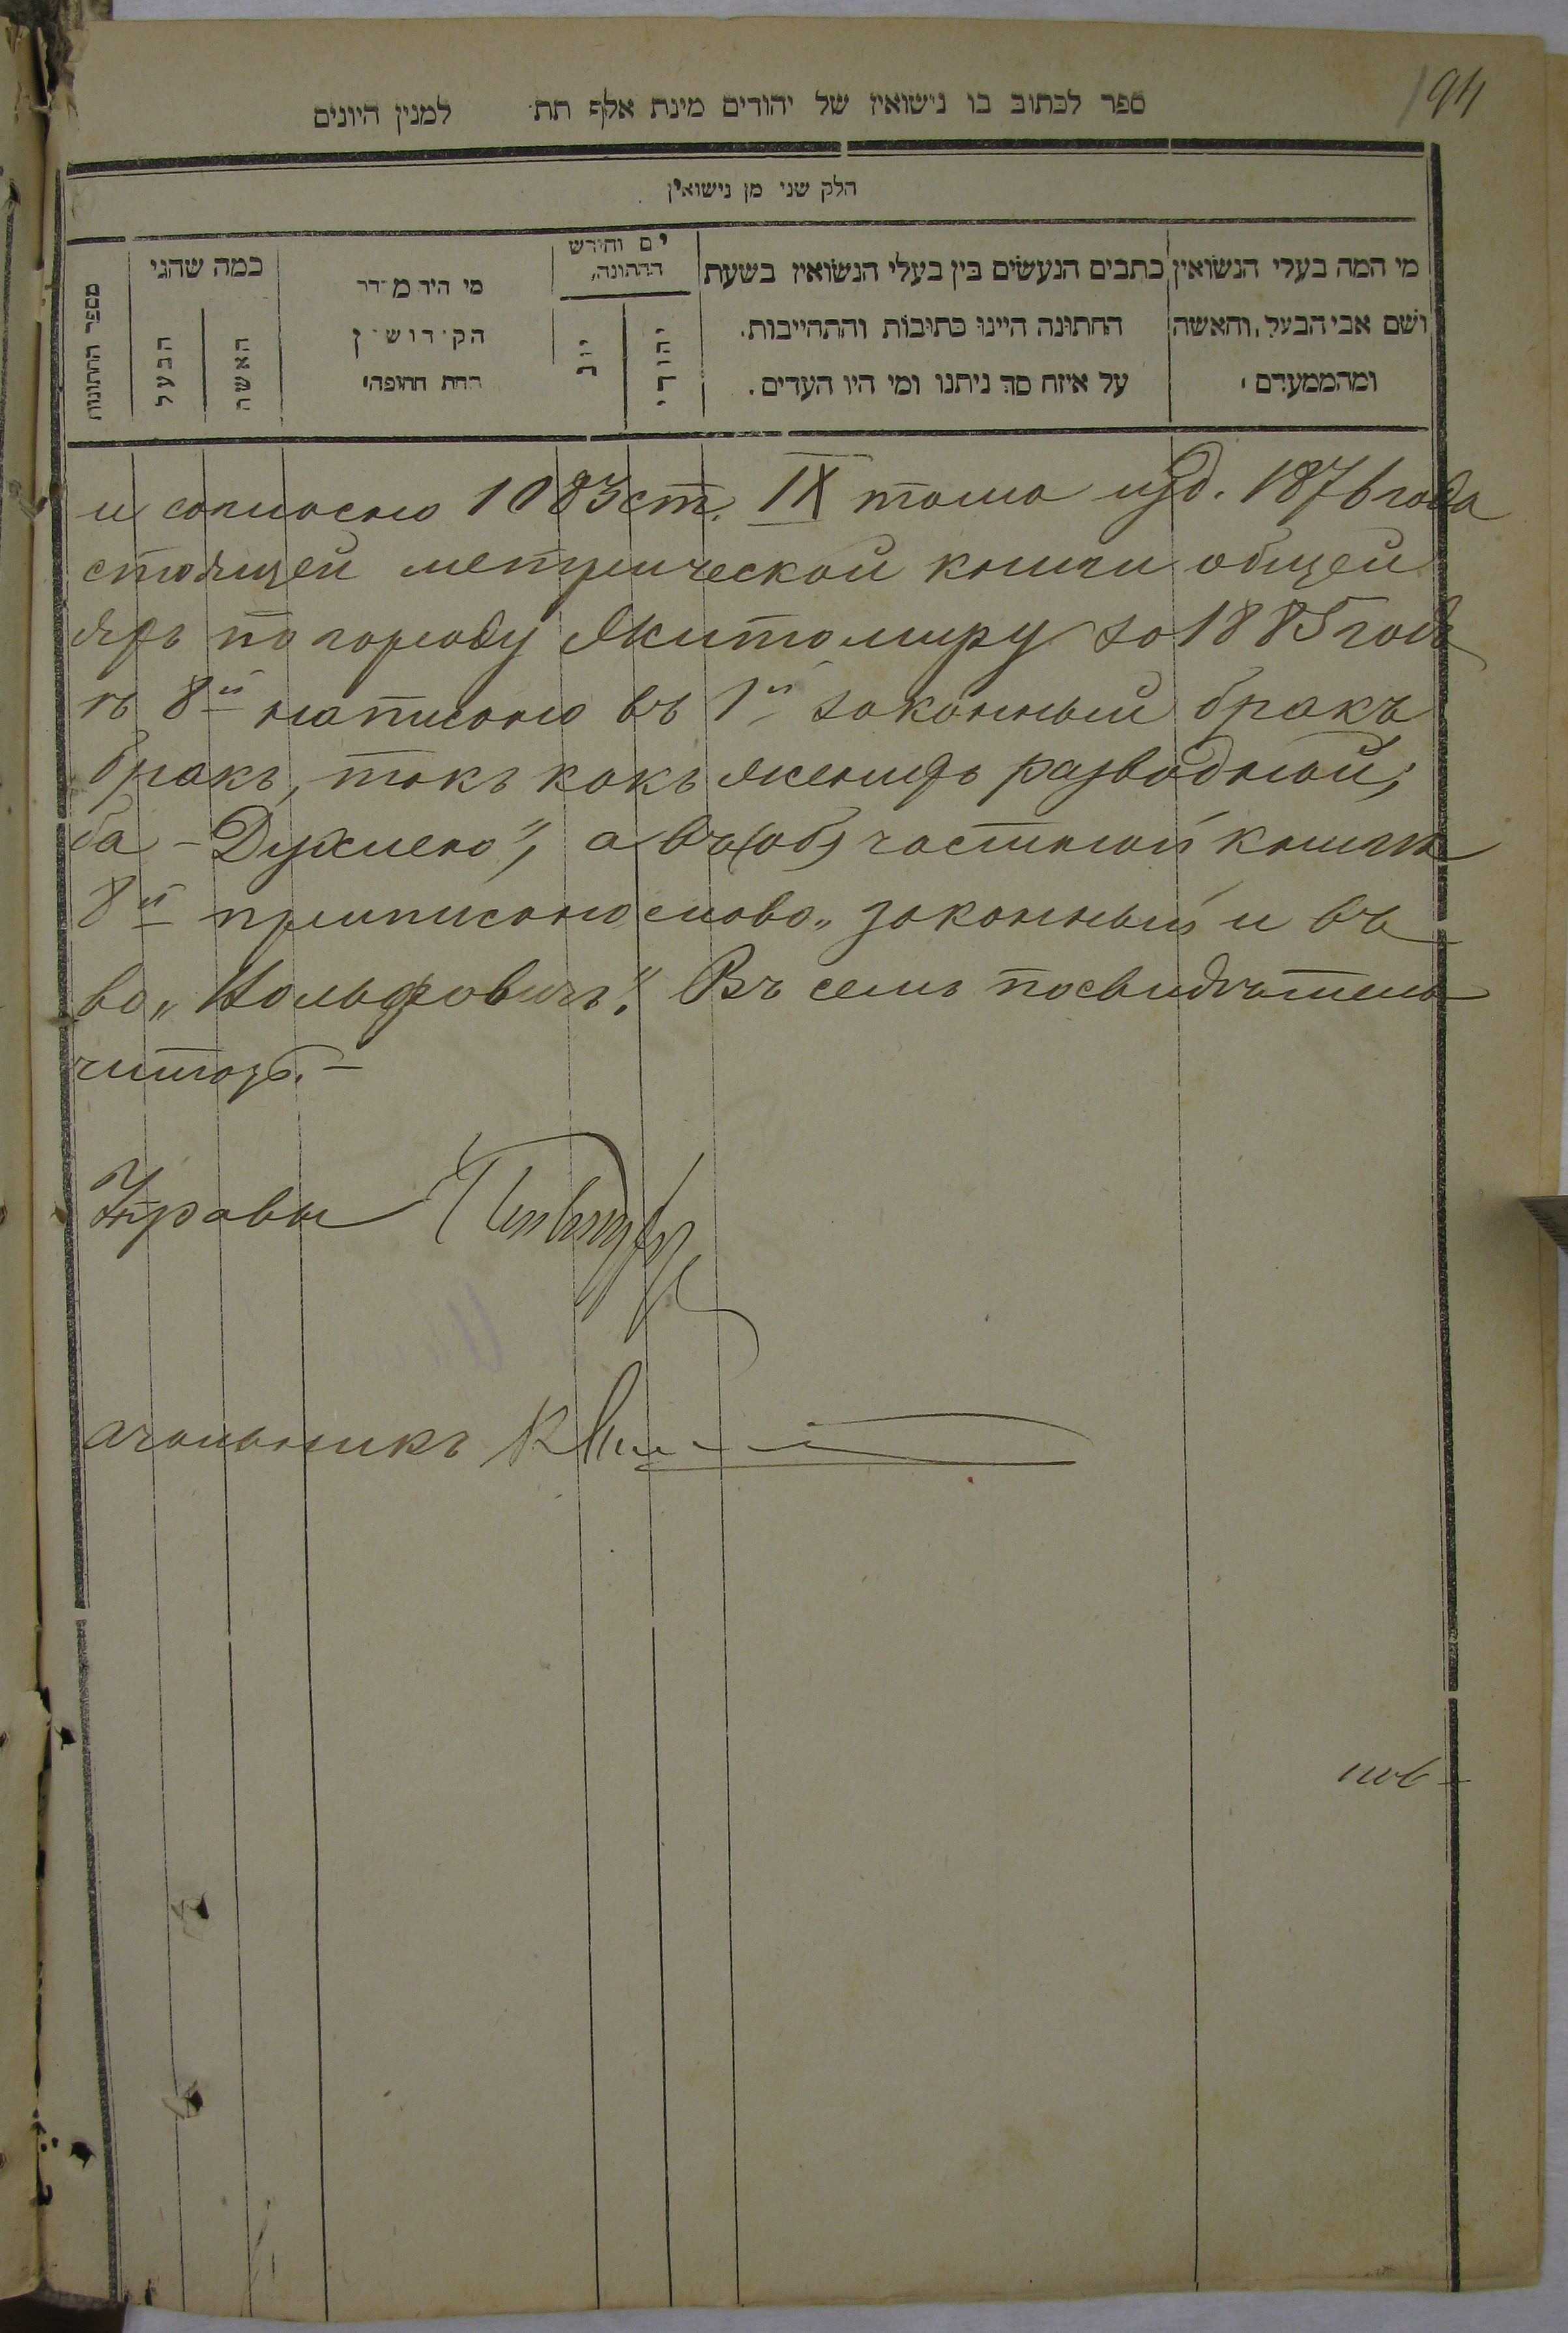 194
ספר לכתוב בו נישואין של יהודים מינת אלף תת למנין היונים
חלק שני מן נישואין
מספר החתונות
כמה שהני
הבעל
האשה
מי היה מסדר
הקידושין
תחת החופה
יום וחודש
החתונה
יוני
יהודי
כתבים הנעשים בין בעלי הנשואין בשעת
החתונה היינו כתובות והתהייבות.
על איזה סך ניתנו ומי היו העדים.
מי המה בעלי הנשואין
ושם אבי הבעל והאשה
ומהממעדם
и согласно 1083 ст. IX тома изд. 1876 года
стоящей метрической книги общей
по городу Житомиру за 1885 годъ
8й написано въ 1й законный бракъ
бракъ, такъ какъ женихъ разводной;
ба - Духмено", а въ частной книги
8й приписано слово „законный и въ
во „Вольфовичъ". Въ семъ посвидѣтель
Управы
ачальникъ